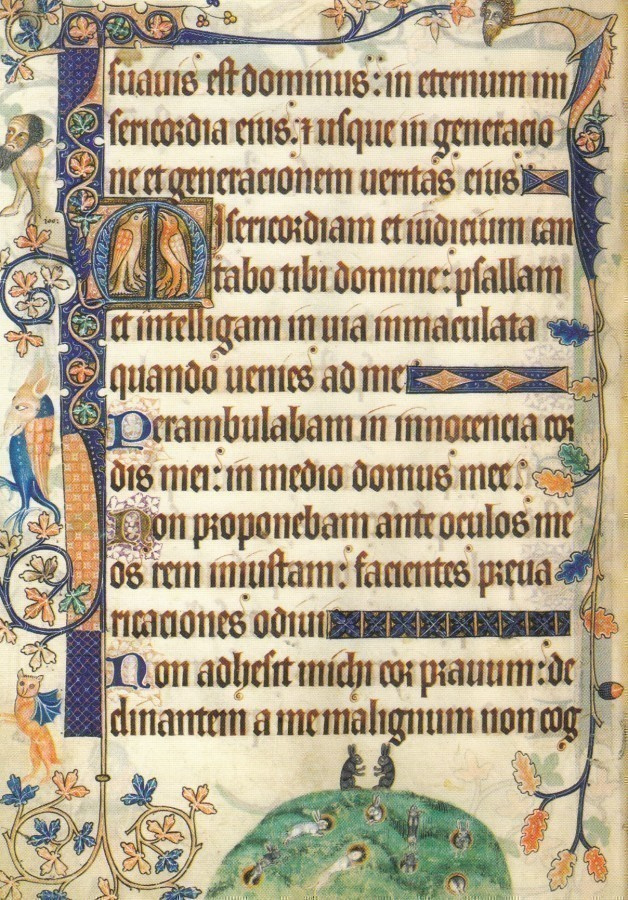 suauis est dominus: in eternum mi
sericordia eius. ⁊ usque in generacio
ne et generacionem ueritas eius
Misericordiam et iudicium can
tabo tibi domine: psallam
et intelligam in uia immaculata
quando uenies ad me
Perambulabam in innocencia cor
dis mei: in medio domus mee.
Non proponebam ante oculos me
os rem iniustam: facientes preua
ricaciones odiui
Non adhesit michi cor prauum: de
clinantem a me malignum non cog